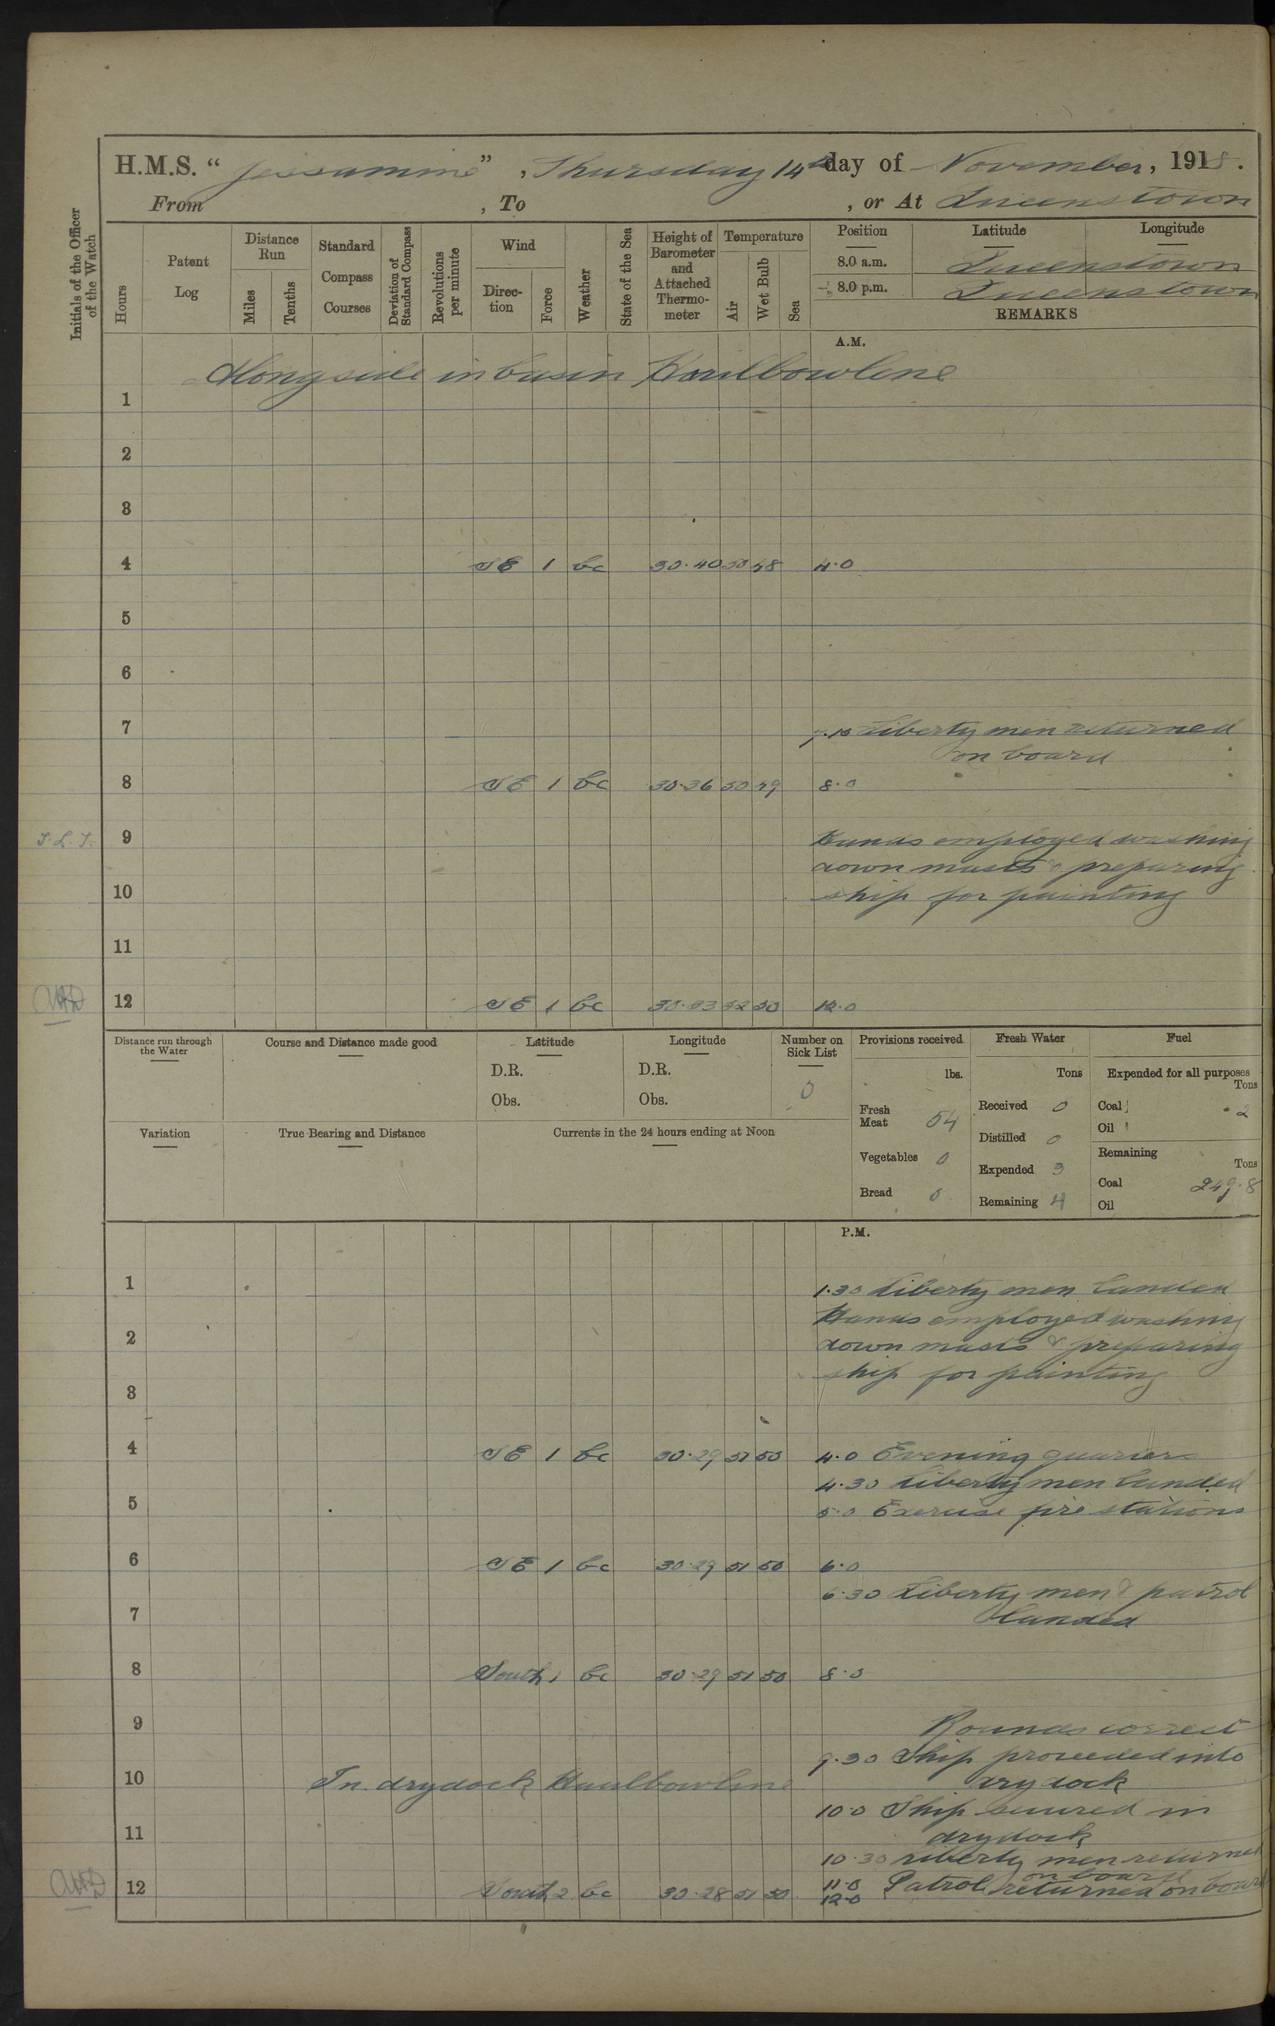 H.M.S. “ Jessamine ” , Thursday 14th day of November , 1918 .
From , To , or At Queenstown
Initials of the Officer of the Watch
Hours
Patent Log
Distance Run
Miles
Tenths
Standard Compass Courses
Deviation of Standard Compass
Revolutions per minute
Wind
Direction
Force
Weather
State of the Sea
Height of Barometer and Attached Thermometer
Temperature
Air
Wet Bulb
Sea
Position Latitude Longitude
8.0 a.m. Queenstown
8.0 p.m. Queenstown
REMARKS
A.M.
Alongside in basin Haulbowline
1
2
3
4 SE 1 bc 30.40 50 48 4.0
5
6
7
7.10 Liberty men returned
on board
8 SE 1 bc 30.36 50 49 8.0
9 Hands employed washing
down masts & preparing
10 ship for painting
11
12 SE 1 bc 30.33 52 50 12.0
Distance run through the Water
Course and Distance made good
Latitude
D.R.
Obs.
Longitude
D.R.
Obs.
Number on Sick List
0
Provisions received
lbs.
Fresh Meat 54
Vegetables 0
Bread 0
Fresh Water
Tons
Received 0
Distilled 0
Expended 3
Remaining 4
Fuel
Expended for all purposes
Tons
Coal .2
Oil
Remaining
Tons
Coal 249.8
Oil
Variation
True Bearing and Distance
Currents in the 24 hours ending at Noon
P.M.
1 1.30 Liberty men landed
Hands employed washing
2 down masts & preparing
ship for painting
3
4 SE 1 bc 30.29 51 50 4.0 Evening quarters
4.30 Liberty men landed
5 5.0 Exercise fire stations
6 SE 1 bc 30.29 51 50 6.0
6.30 Liberty men & patrol
7 landed
8 South 1 bc 30.29 51 50 8.0
9 Rounds correct
9.30 Ship proceeded into
10 In drydock Haulbowline dry dock
10.0 Ship secured in
11 drydock
10.30 Liberty men returned
on board
11.0 Patrol returned on board
12 South 2 bc 30.28 51 50 12.0